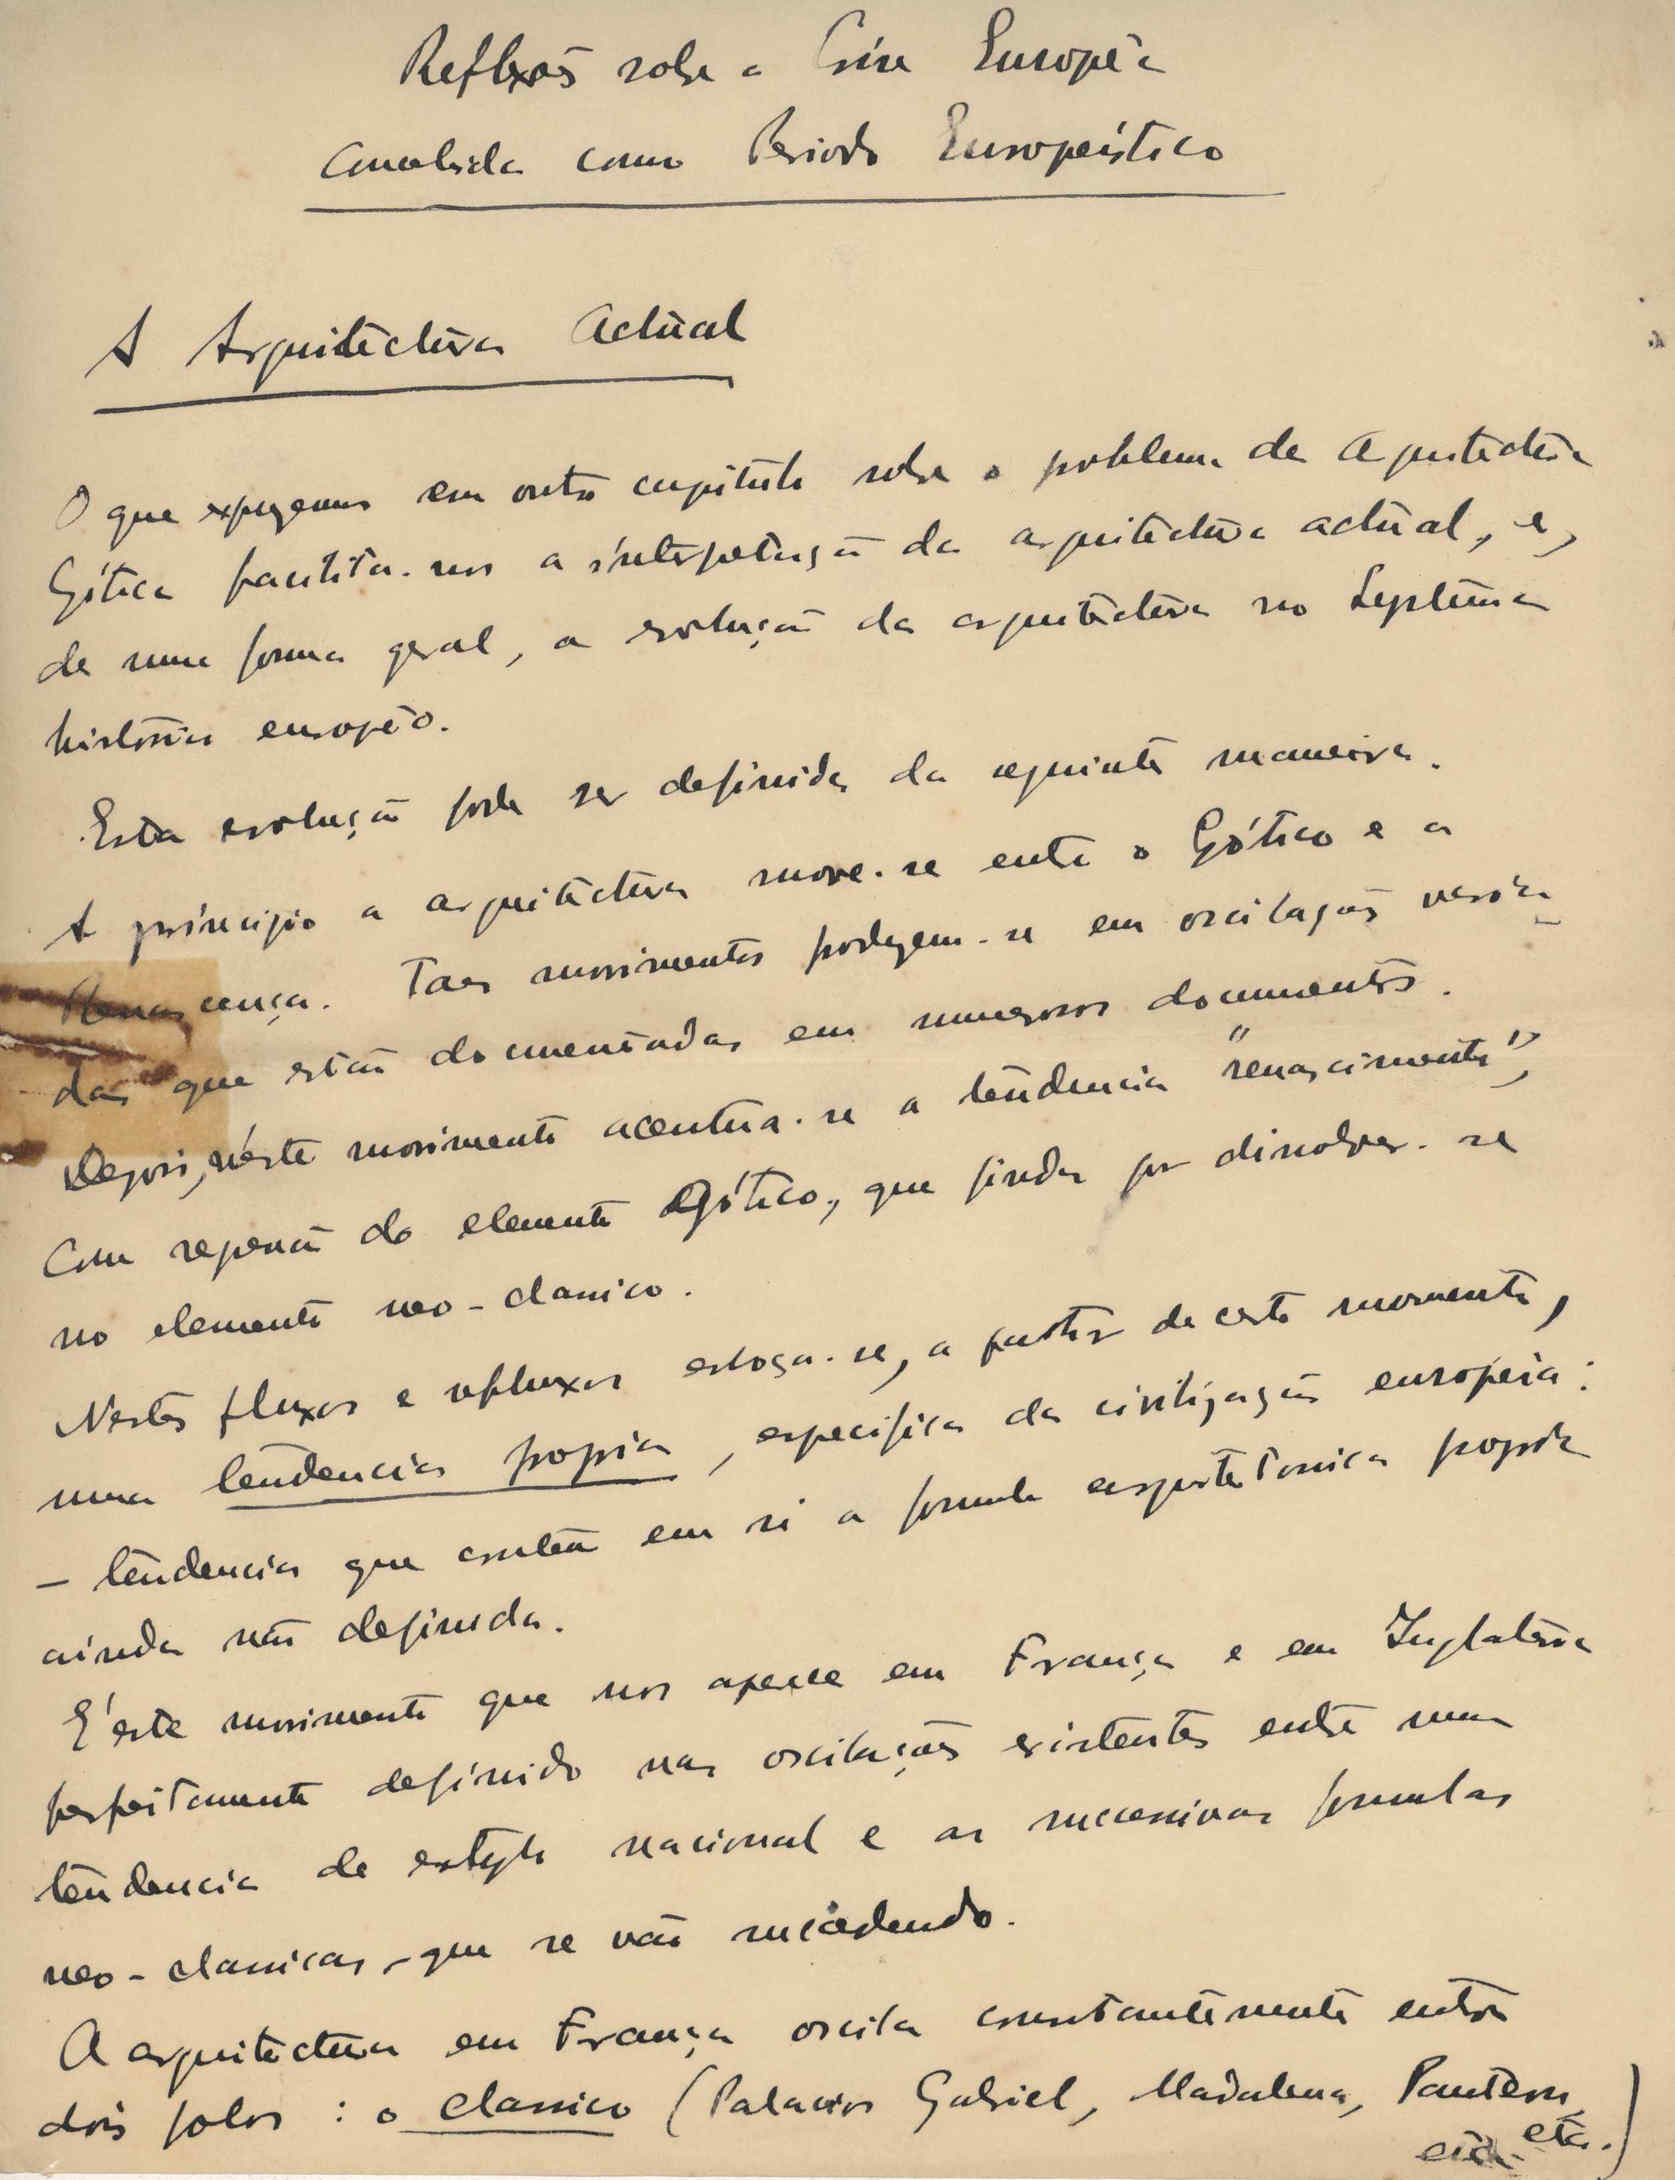 Reflexões sobre a Crise Européa
Concebida como Periodo Europeístico
A Arquitectura Actual
O que expuzemos em outro capitulo sobre o problema da Arquitectura
Gótica facilita-nos a interpetração da arquitectura actual, e,
de uma forma geral, a evolução da arquitectura no Systema
historico européo.
Esta evolução pode ser definida da seguinte maneira.
A principio a arquitectura move-se entre o Gótico e a
Renascença. Taes movimentos produzem-se em oscilações
das que estão documentadas em numerosos documentos.
Depois, néste movimento acentua-se a tendencia "renascimento",
Com repensão do elemento Gótico, que finda por dissolver-se
no elemento neo-classico.
Nestes fluxos e refluxos esboça-se, a partir de certo momento,
uma tendencia propria, especifica da civilização europeia:
- tendencia que contém em si a formula arquitetonica propria
ainda não definida.
É este movimento que nos aparece em França e em Inglaterra
perfeitamente definido nas oscilações existentes entre uma
tendencia de estylo nacional e as sucessivas formulas
neo-classicas, que se vão sucedendo.
A arquitectura em França oscila constantemente entre
dois polos: o classico (Palacios Gabriel, Madalena, Panteon,
etc.)